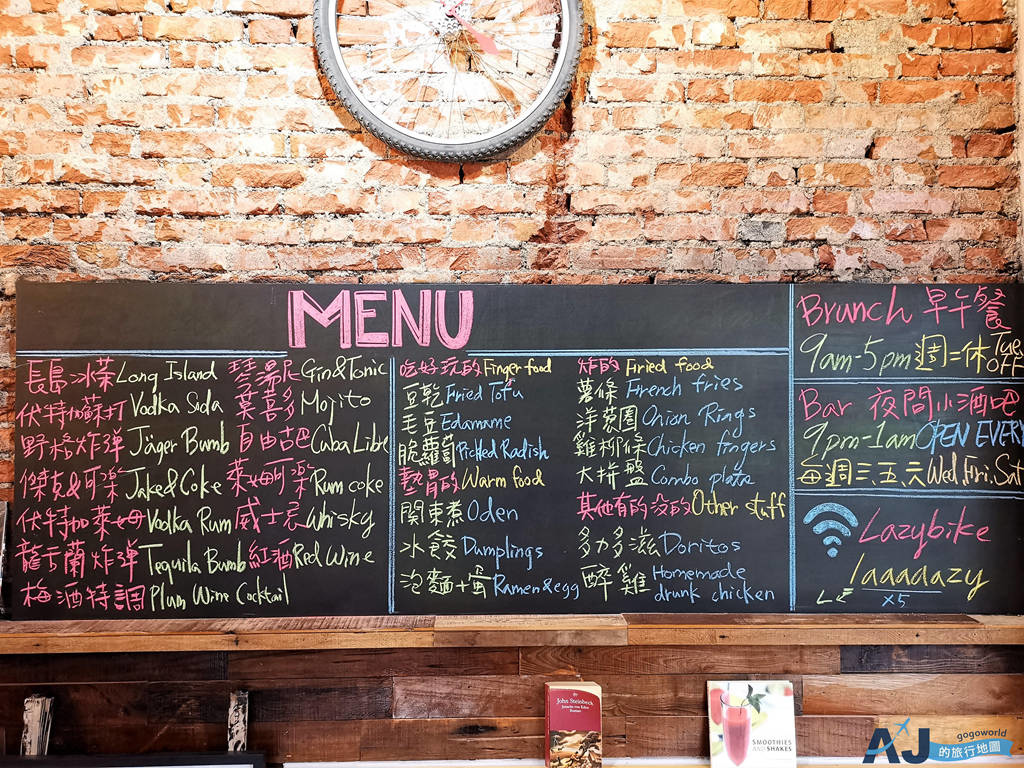 MENU
長島冰茶 Long Island
伏特加蘇打 Vodka Soda
野格炸彈 Jäger Bumb
傑克&可樂 Jake&Coke
伏特加萊姆 Vodka Rum
龍舌蘭炸彈 Tequila Bumb
梅酒特調 Plum Wine Cocktail
琴湯尼 Gin&Tonic
莫喜多 Mojito
自由古巴 Cuba Libre
萊姆可樂 Rum coke
威士忌 Whisky
紅酒 Red Wine
吃好玩的 Finger food
豆乾 Fried Tofu
毛豆 Edamame
脆蘿蔔 Pickled Radish
墊胃的 Warm food
關東煮 Oden
水餃 Dumplings
泡麵+蛋 Ramen&egg
炸的 Firied food
薯條 Firench fries
洋蔥圈 Onion Rings
雞柳條 Chicken fingers
大拼盤 Combo plate
其他有的沒的 Other stuff
多力多滋 Doritos
醉雞 Homemade
drunk chicken
Brunch 早午餐
9am-5pm 週二休 Tue
OFF
Bar 夜間小酒吧
9pm-1am OPEN EVERY
每週三.五.六 Wed.Fri.Sat
Lazybike
laaaaazy
x5
John Steinbeck
SMOOTHIES
AND SHAKES
AJ gogoworld
的旅行地圖